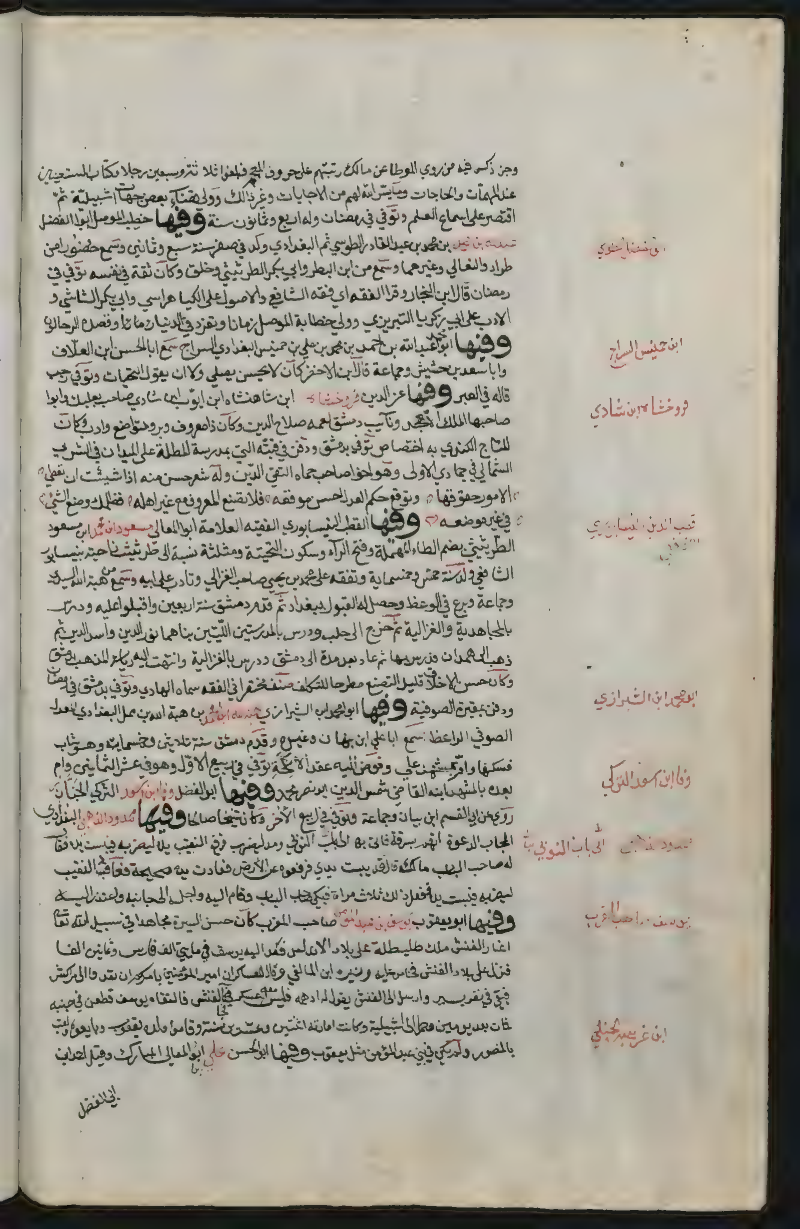 وجزء ذكر فيه من روى الموطأ عن مالك رتبهم على حروف المعجم فبلغوا ثلاثة وسبعين رجلا وكتاب المستغيثين
عند المهمات والحاجات وما يسر الله لهم من الاجابات وغير ذلك وولي قضاء بعض جهات اشبيلية ثم
اقتصر على اسماع العلم وتوفي في رمضان وله اربع وثمانون سنة وفيها خطيب الموصل ابو الفضل
عبد الله بن بن محمد بن عبد القادر الطوسي ثم البغدادي ولد في صفر سنة سبع وثمانين وسمع حضورا من
طراد والنعالي وغيرهما وسمع من ابن البطر وابي بكر الطريثيثي وخلق وكان ثقة في نفسه توفي في
رمضان قال ابن النجار وقرأ الفقه اي فقه الشافعي والاصول على الكيا هراسي وابي بكر الشاشي و
الادب على ابي زكريا التبريزي وولي خطابة الموصل زمانا وتفرد في الدنيا زمانا وقصده الرحالون
وفيها ابو عبد الله بن احمد بن محمد بن علي بن خميس البغدادي السراج سمع ابا الحسن ابن العلاف
وابا سعد بن خشيش وجماعة قال ابن الاخضر كان لا يحسن يصلي ولا ان يقول التحيات وتوفي رجب
قاله في العبر وفيها عز الدين فروخشاه ابن شاهنشاه ابن ايوب ابن شادي صاحب بعلبك وابو
صاحبها الملك الامجد ونائب دمشق لعمه صلاح الدين وكان ذا معروف وبر وتواضع وادب وكان
للتاج الكندي به اختصاص توفي بدمشق ودفن في قبته التي بمدرسة المطلة على الميدان في الشرف
الشمالي في جمادي الاولى وهو اخو صاحب حماه التقي الدين وله شعر حسن منه اذا شئت ان تعطي
الامور حقوقها وتوقع حكم العدل احسن موقعه فلا تصنع المعروف مع غير اهله فظلمك وضع الشئ
في غير موضعه وفيها القطب النيسابوري الفقيه العلامة ابو المعالي مسعود ابن محمد ابن مسعود
الطريثيثي بضم الطاء المهملة وفتح الراء وسكون التحتية ومثلثة نسبة الى طريثيث ناحية بنيسابور
الشافعي ولد سنة خمس وخمسماية وتفقه على محمد بن يحيى صاحب الغزالي وتأدب على ابيه وسمع من هبة الله السيدي
وجماعة وبرع في الوعظ وحصل له القبول ببغداد ثم قدم دمشق سنة اربعين واقبلوا عليه ودرس
بالمجاهدية والغزالية ثم خرج الى حلب ودرس بالمدرستين اللتين بناهما نور الدين واسد الدين ثم
ذهب الى همدان ودرس بها ثم عاد بعد مدة الى دمشق ودرس بالغزالية وانتهت اليه رياسة المذهب بدمشق
وكان حسن الاخلاق قليل التصنع مطرحا للتكلف صنف مختصرا في الفقه سماه الهادي وتوفي بدمشق في رمضان
ودفن بمقبرة الصوفية وفيها ابو محمد ابن الشيرازي هبة الله بن هبة الله بن مميل البغدادي
الصوفي الواعظ سمع ابا علي ابن نبهان وغيره وقدم دمشق سنة ثلاثين وخمسماية وهو شاب
فسكنها وأم بمشهد علي وفوض اليه عقد الانكحة توفي في ربيع الاول وهو في عشر الثمانين وأم
بعده بالمشهد ابنه القاضي شمس الدين ابو نصر محمد وفيها ابو الفضل وفا ابن اسعد التركي الخباز
روى عن ابي القسم ابن بيان وجماعة وتوفي في ربيع الآخر وكان شيخا صالحا وفيها ممدود الذهبي البغدادي
المجاب الدعوة اتهم بسرقة فاتى به الى باب النوبي ومد ليضرب فرفع النقيب يده ليضربه فيبست يده فقال
له صاحب الباب مالك قال قد يبست يدي فرفعوه عن الارض فعادت يده صحيحة فعاد النقيب
ليضربه فيبست يده فعل ذلك ثلاث مرات فبكى صاحب الباب وقام اليه واجلسه الى جانبه واعتذر اليه
وفيها ابو يعقوب يوسف بن عبد المؤمن صاحب المغرب كان حسن السيرة مجاهدا في سبيل الله تعالى
اغار الفنش ملك طليطلة على بلاد الاندلس فقصد اليه يوسف في مايتي الف فارس وثمانين الفا
فنزل على بلاد الفنش
فبقي في نفر يسير وارسل الى الفنش
فمات بعد يومين فحمل الى اشبيلية وكانت امارته اثنتين وعشرين سنة وقام ولده يعقوب وبايعوه ولقب
بالمنصور ولم يكن في بني عبد المؤمن مثل يعقوب وفيها ابو الحسن علي ابو المعالي المبارك وقيل احمد ابن
ابي الفضل
ابن خميس السراج
فروخشاه ابن شادي
قطب الدين النيسابوري
ابو محمد ابن الشيرازي
وفا ابن اسعد التركي
ممدود الذهبي الى باب النوبي
يوسف صاحب المغرب
ابن غريبة الحنبلي